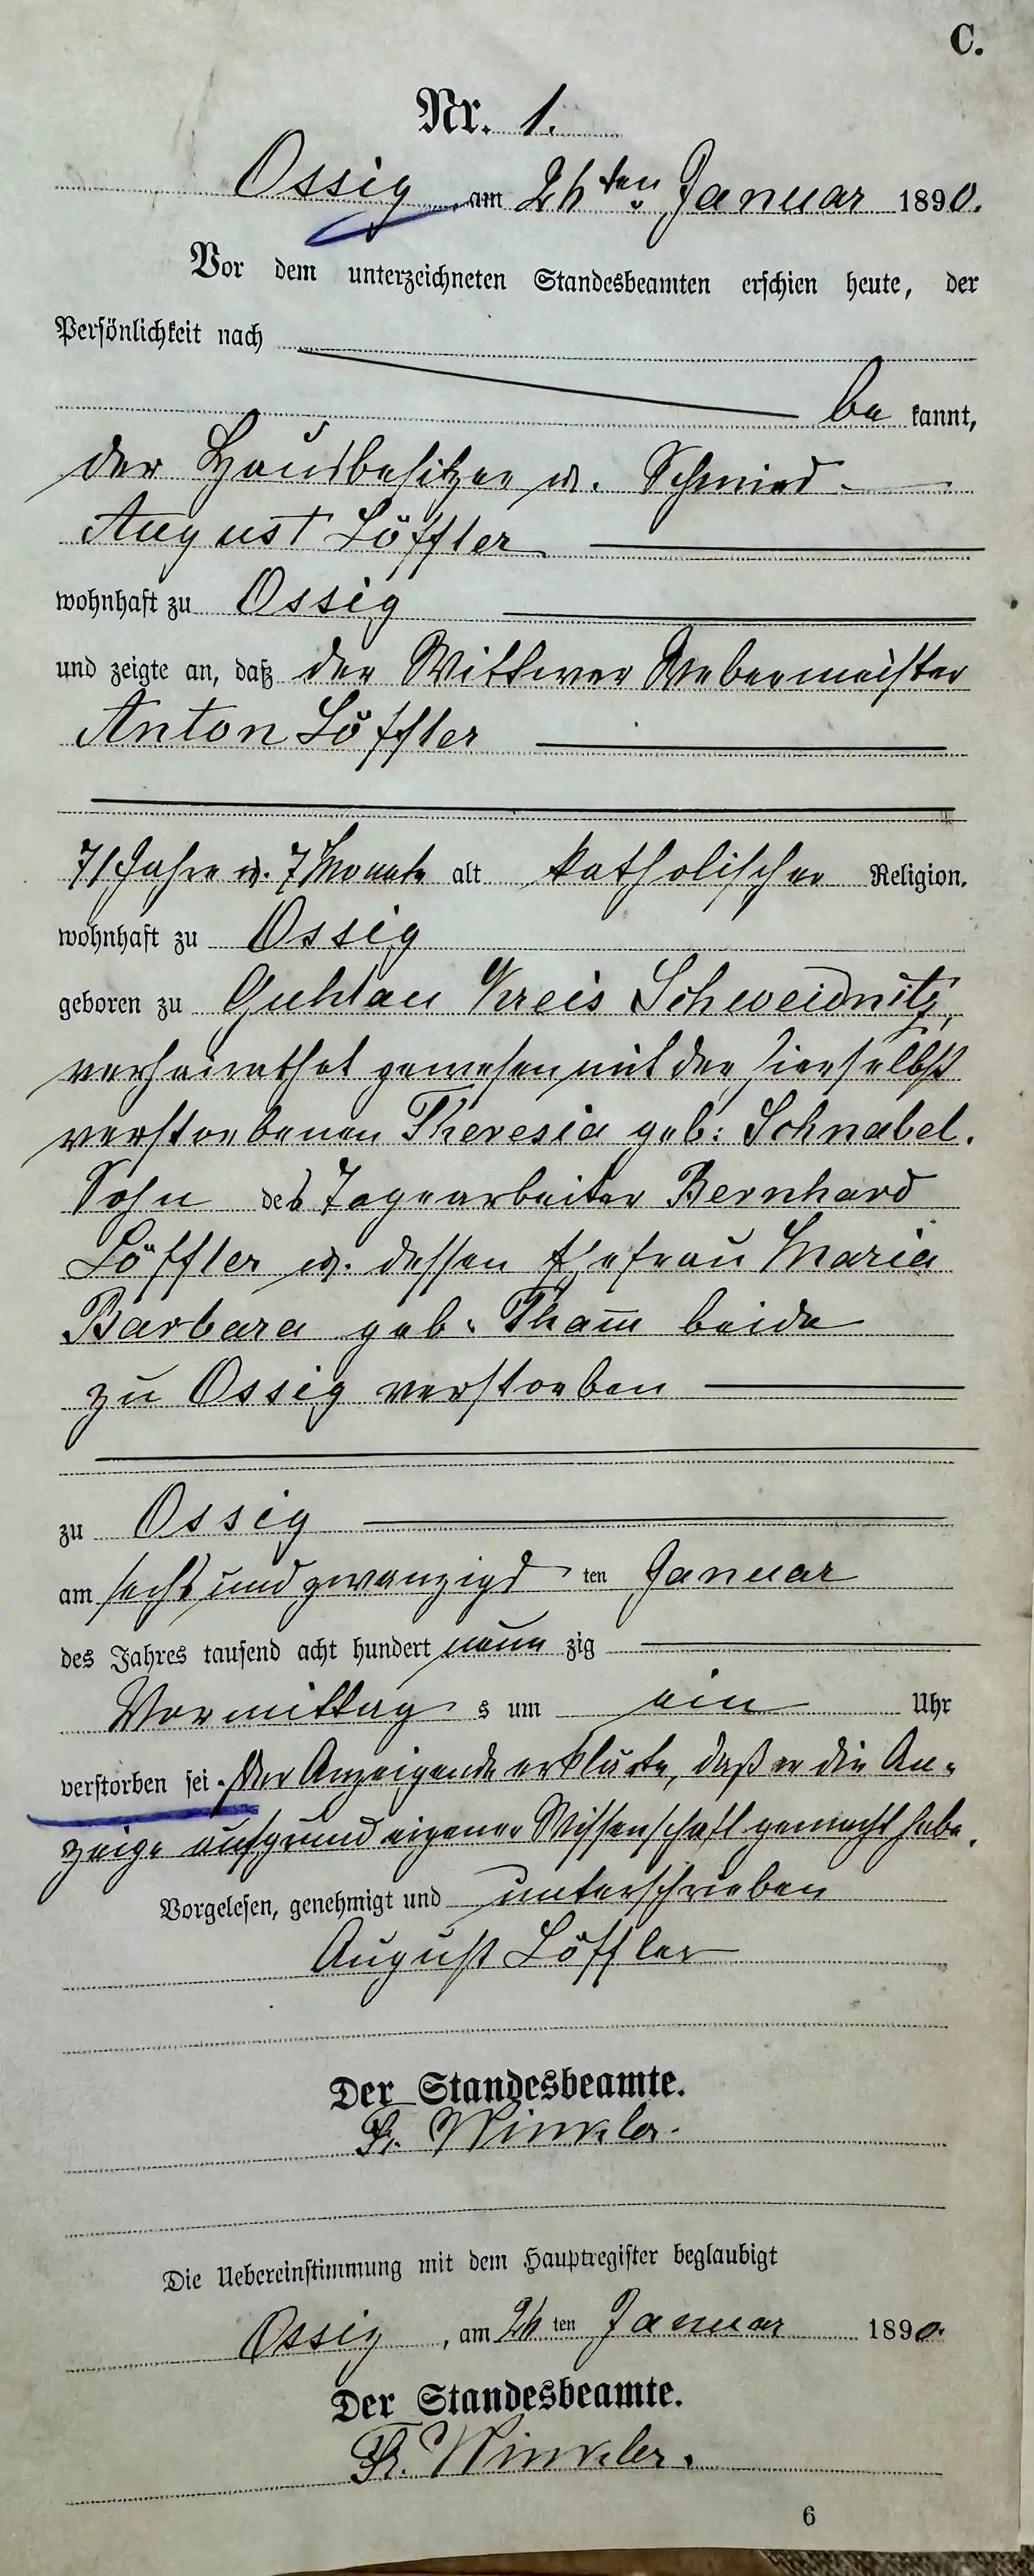 C.
Nr. 1.
Ossig, am 26ten Januar 1890.
Vor dem unterzeichneten Standesbeamten erschien heute, der
Persönlichkeit nach
be kannt,
der Hausbesitzer u. Schmied
August Löffler
wohnhaft zu Ossig
und zeigte an, daß der Wittwer Webermeister
Anton Löffler
71 Jahre u. 7 Monate alt katholischer Religion,
wohnhaft zu Ossig
geboren zu Guhlau Kreis Schweidnitz,
verheirathet gewesen mit der hierselbst
verstorbenen Theresia geb: Schnabel.
Sohn des Tagearbeiter Bernhard
Löffler u. dessen Ehefrau Maria
Barbara geb. Tham̅ beide
zu Ossig verstorben
zu Ossig
am sechs und zwanzigst ten Januar
des Jahres tausend acht hundert neun zig
Vormittag s um ein Uhr
verstorben sei. Der Anzeigende erklärte, daß er die An-
zeige aufgrund eigener Wissenschaft gemacht habe.
Vorgelesen, genehmigt und unterschrieben
August Löffler
Der Standesbeamte.
Fr. Winkler.
Die Uebereinstimmung mit dem Hauptregister beglaubigt
Ossig, am 26 ten Januar 1890.
Der Standesbeamte.
Fr. Winkler.
6